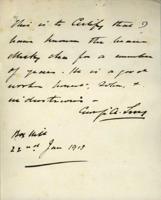 This is to Certify that I
have known the bearer
Chicky Chan for a number
of years. He is a good
worker honest, sober, &
industrious
Box Hill
22nd Jan 1913